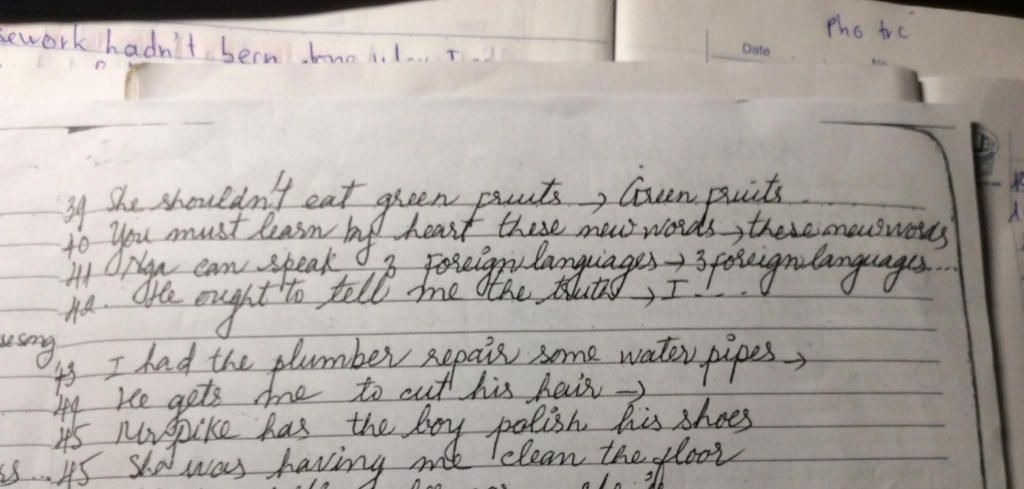 sework hadn't been done when I
Pho trc
Date
No
39 She shouldn't eat green fruits → Green fruits ...
40 You must learn by heart these new words → these new words
41 Nga can speak 3 foreign languages → 3 foreign languages ...
42. He ought to tell me the truth → I ....
se song
43 I had the plumber repair some water pipes →
44 He gets me to cut his hair →
45 Mr Pike has the boy polish his shoes
ss... 45 She was having me clean the floor